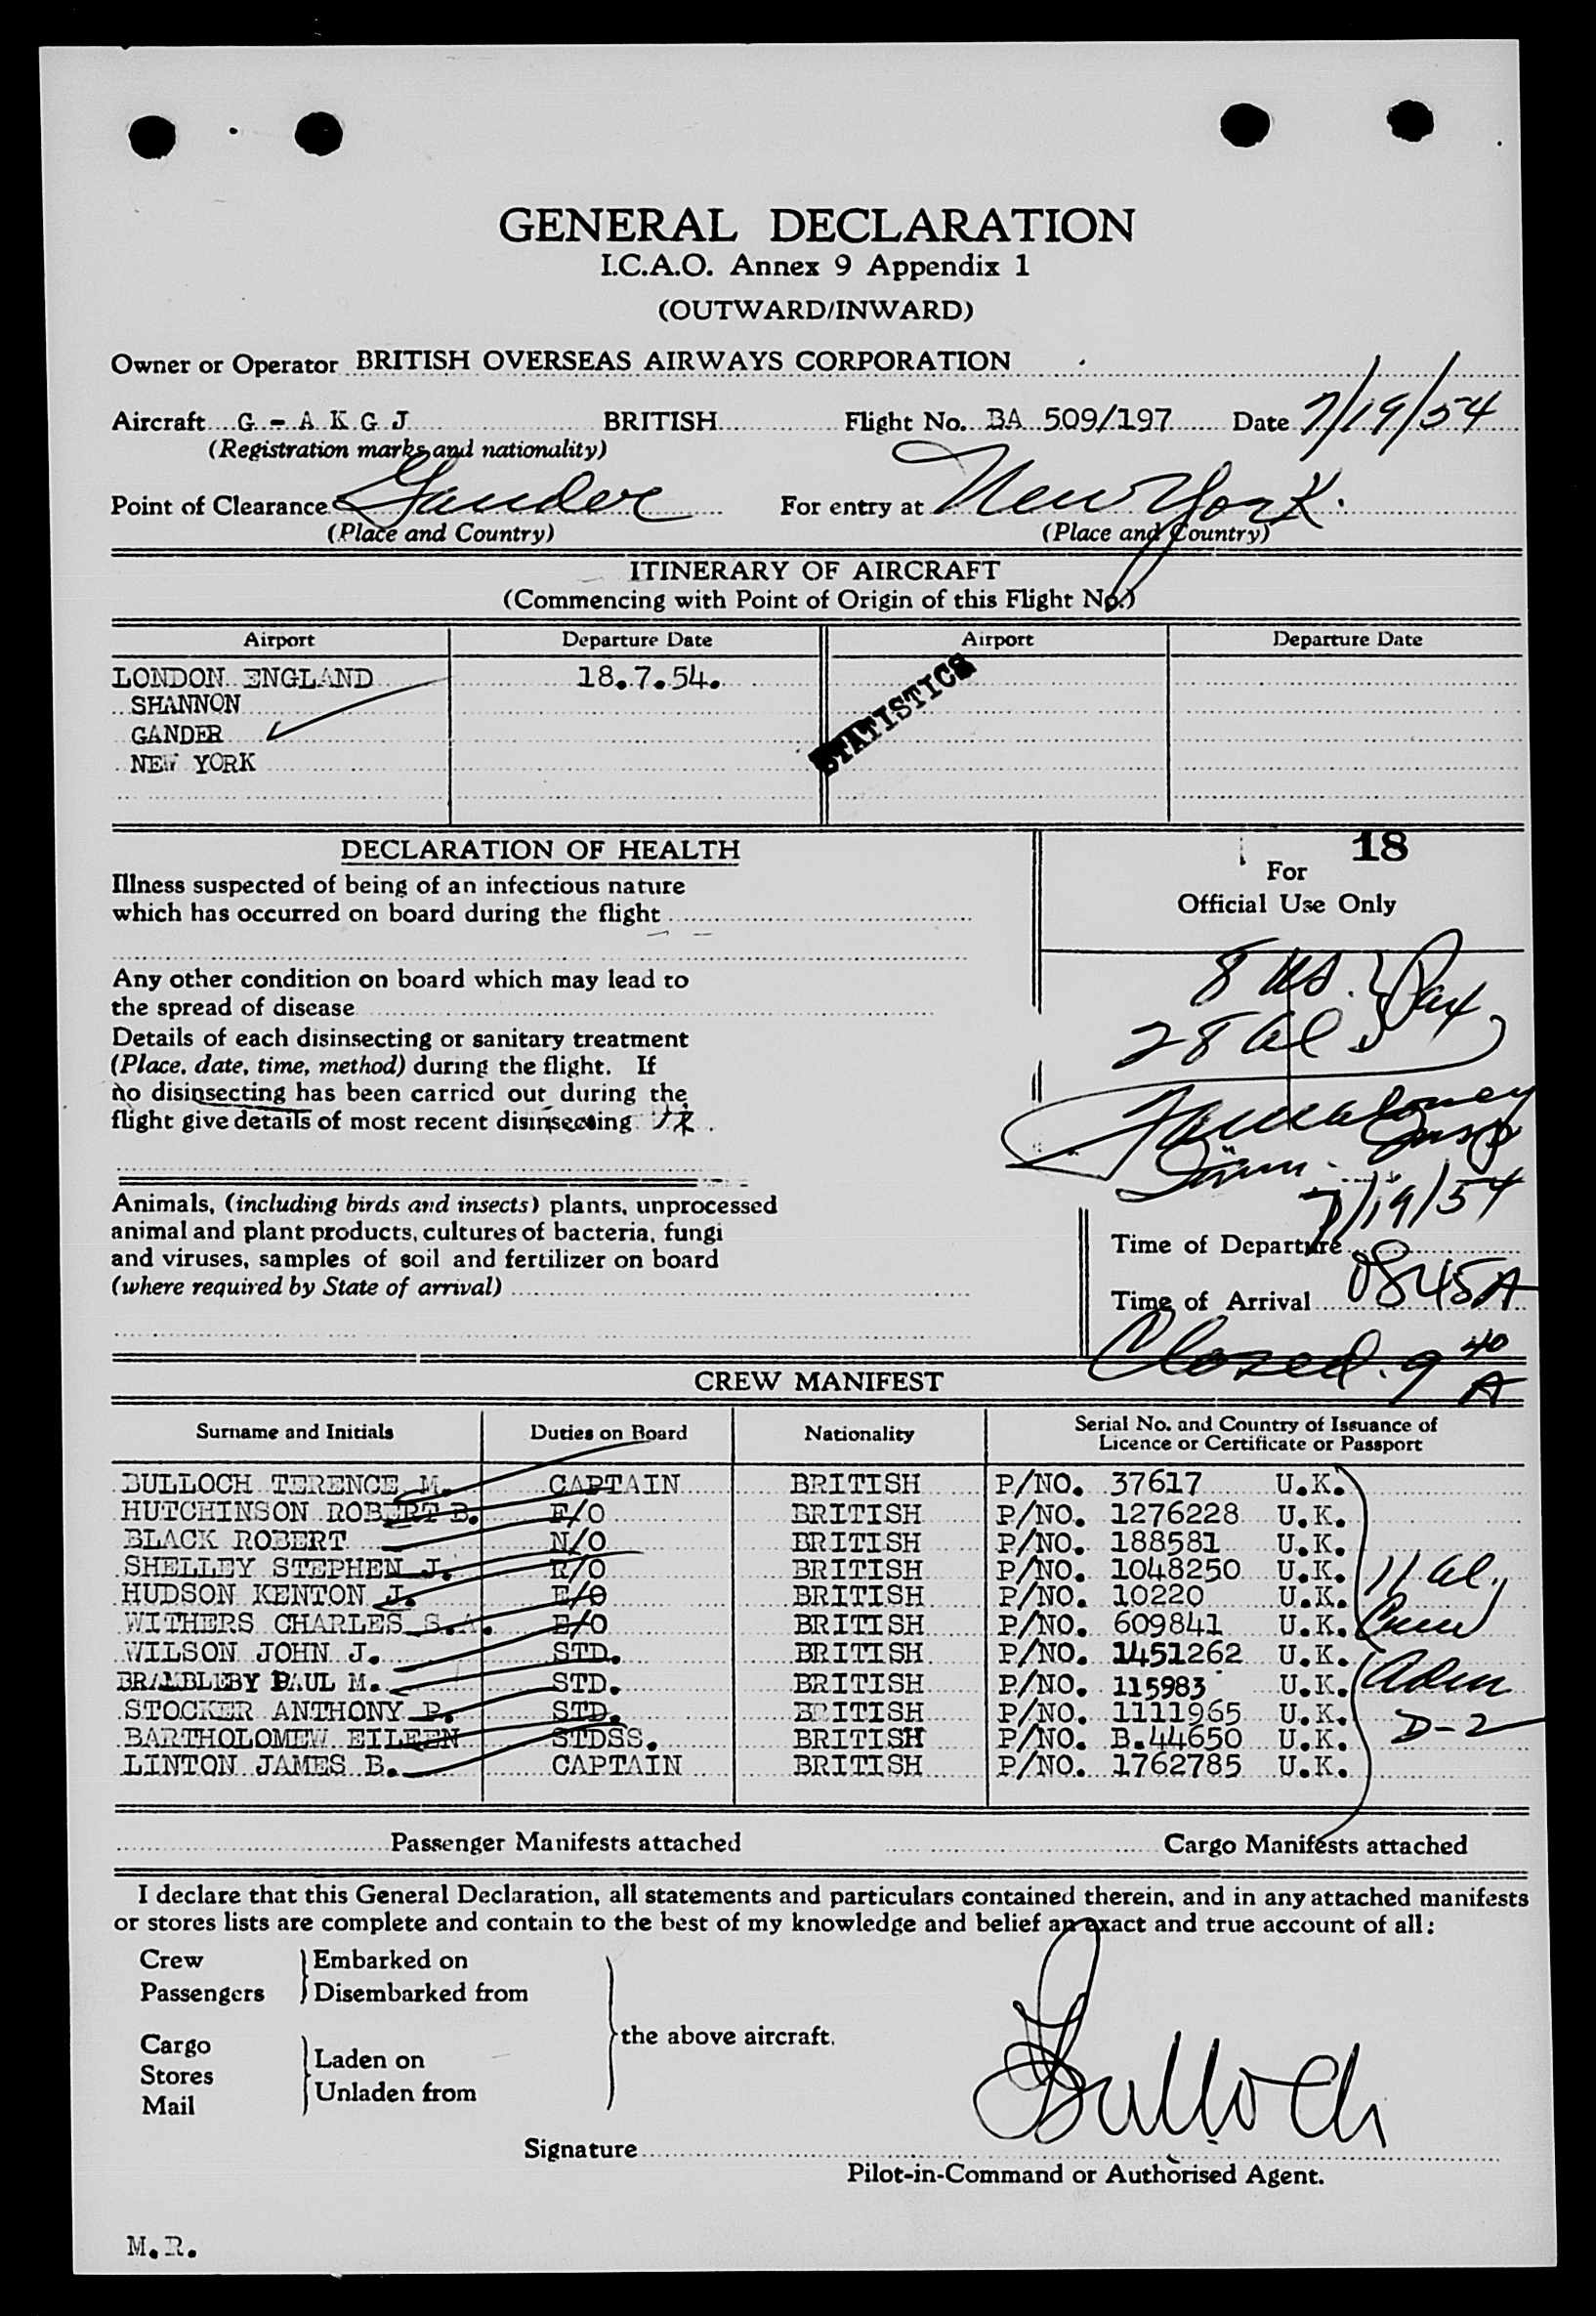 GENERAL DECLARATION
I.C.A.O. Annex 9 Appendix 1
(OUTWARD/INWARD)
Owner or Operator BRITISH OVERSEAS AIRWAYS CORPORATION
Aircraft G - A K G J BRITISH Flight No. BA 509/197 Date 7/19/54
(Registration marks and nationality)
Point of Clearance Gander For entry at New York.
(Place and Country) (Place and Country)
ITINERARY OF AIRCRAFT
(Commencing with Point of Origin of this Flight No.)
Airport Departure Date Airport Departure Date
LONDON ENGLAND 18.7.54.
SHANNON
GANDER
NEW YORK
STATISTICS
DECLARATION OF HEALTH
Illness suspected of being of an infectious nature
which has occurred on board during the flight
Any other condition on board which may lead to
the spread of disease
Details of each disinsecting or sanitary treatment
(Place, date, time, method) during the flight. If
no disinsecting has been carried out during the
flight give details of most recent disinsecting
Animals, (including birds and insects) plants, unprocessed
animal and plant products, cultures of bacteria, fungi
and viruses, samples of soil and fertilizer on board
(where required by State of arrival)
18
For
Official Use Only
8 US. Pax
28 al
Imm. Insp
7/19/54
Time of Departure
Time of Arrival 0845A
Closed. 9 40 A
CREW MANIFEST
Surname and Initials Duties on Board Nationality Serial No. and Country of Issuance of
Licence or Certificate or Passport
BULLOCH TERENCE M. CAPTAIN BRITISH P/NO. 37617 U.K.
HUTCHINSON ROBERT B. F/O BRITISH P/NO. 1276228 U.K.
BLACK ROBERT N/O BRITISH P/NO. 188581 U.K.
SHELLEY STEPHEN J. R/O BRITISH P/NO. 1048250 U.K.
HUDSON KENTON J. E/O BRITISH P/NO. 10220 U.K.
WITHERS CHARLES S.A. E/O BRITISH P/NO. 609841 U.K.
WILSON JOHN J. STD. BRITISH P/NO. 1451262 U.K.
BRAMBLEBY PAUL M. STD. BRITISH P/NO. 115983 U.K.
STOCKER ANTHONY P. STD. BRITISH P/NO. 1111965 U.K.
BARTHOLOMEW EILEEN STDSS. BRITISH P/NO. B.44650 U.K.
LINTON JAMES B. CAPTAIN BRITISH P/NO. 1762785 U.K.
11 al.
Crew
Adm
D-2
Passenger Manifests attached Cargo Manifests attached
I declare that this General Declaration, all statements and particulars contained therein, and in any attached manifests
or stores lists are complete and contain to the best of my knowledge and belief an exact and true account of all:
Crew Embarked on
Passengers Disembarked from
the above aircraft.
Cargo
Stores Laden on
Mail Unladen from
Bulloch
Signature
Pilot-in-Command or Authorised Agent.
M.R.